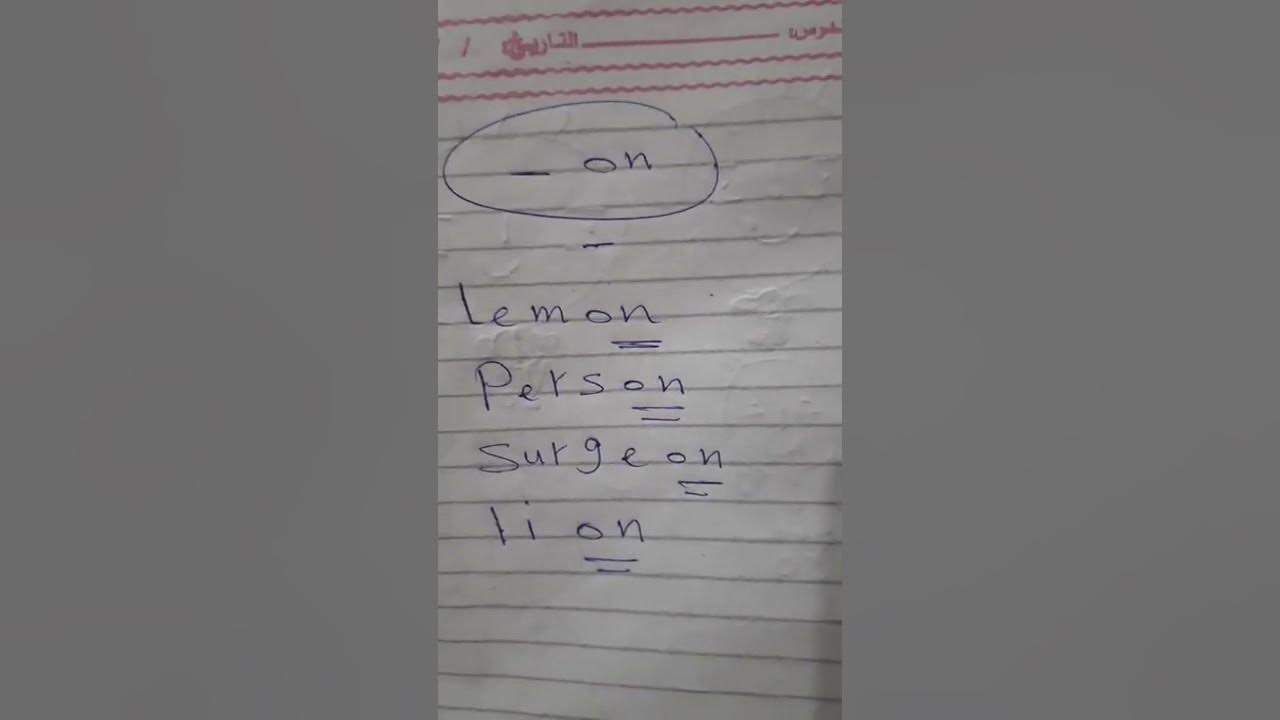 التاريخ: / /
_ on
Lemon
Person
Surgeon
lion